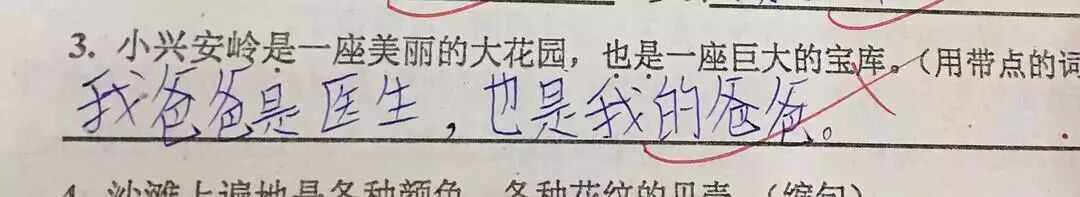 3. 小兴安岭是一座美丽的大花园，也是一座巨大的宝库。（用带点的词
我爸爸是医生，也是我的爸爸。
4. 沙滩上遍地是各种颜色、各种花纹的贝壳。（缩句）